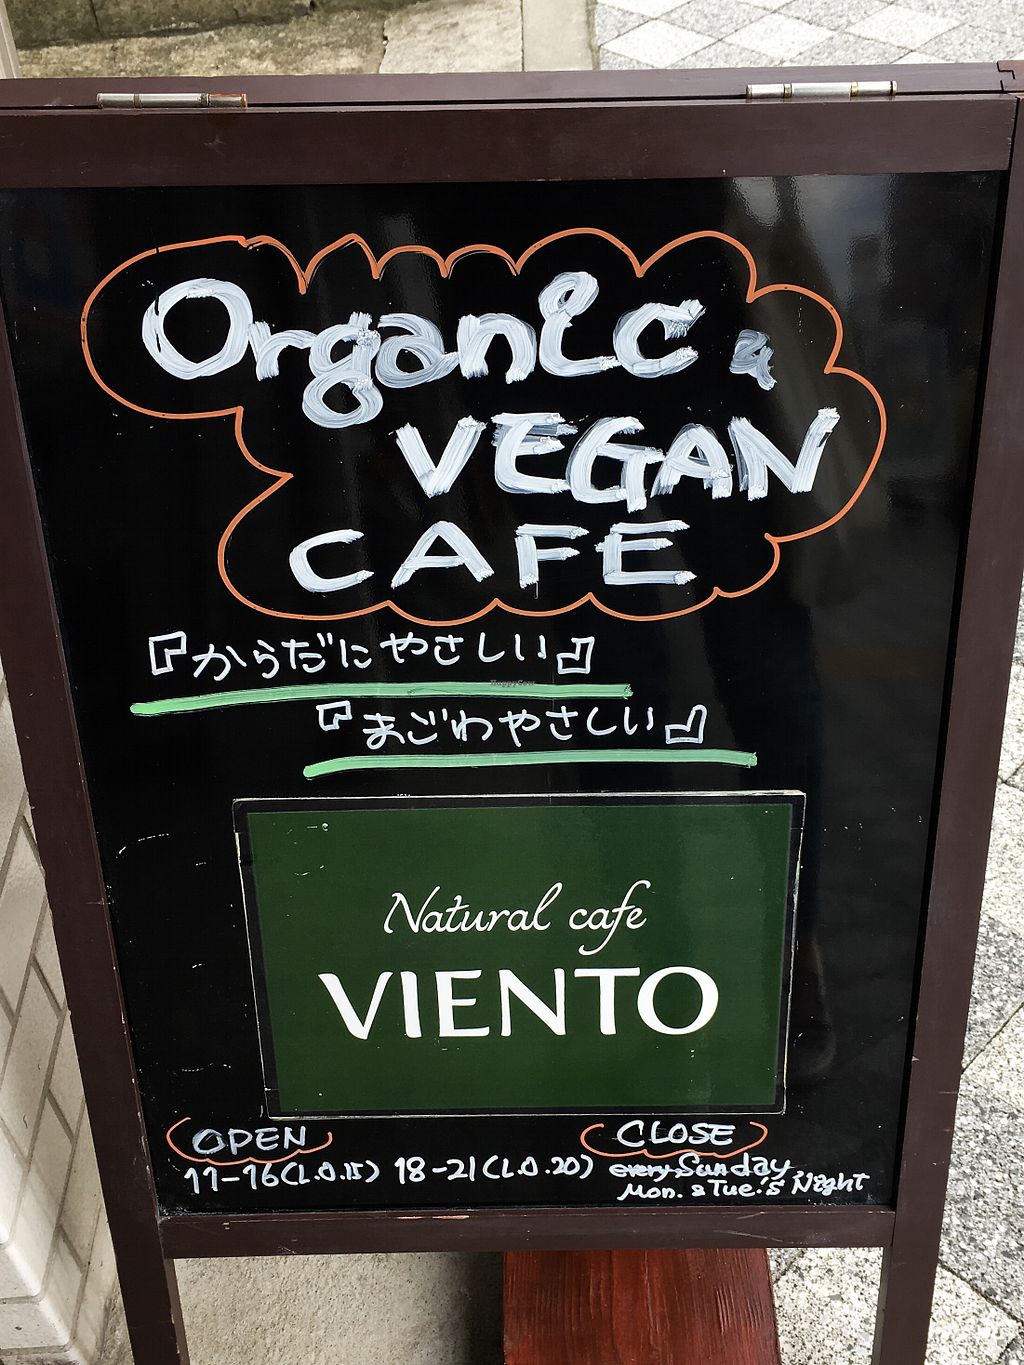 Organic &
VEGAN
CAFE
『からだにやさしい』
HappyCow
『まごわやさしい』
Natural cafe
VIENTO
OPEN
11-16(L.O.15) 18-21(L.O.20)
CLOSE
every Sunday
Mon. & Tue.'s Night